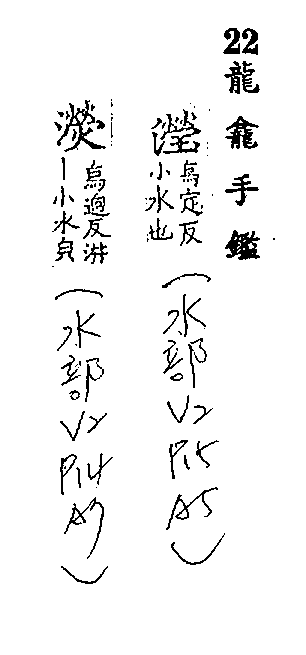 22龍龕手鑑
瀅 烏定反小水也(水部V2 P15 A5)
濙 烏逈反汫丨小水皃(水部。V2 P14 A9)